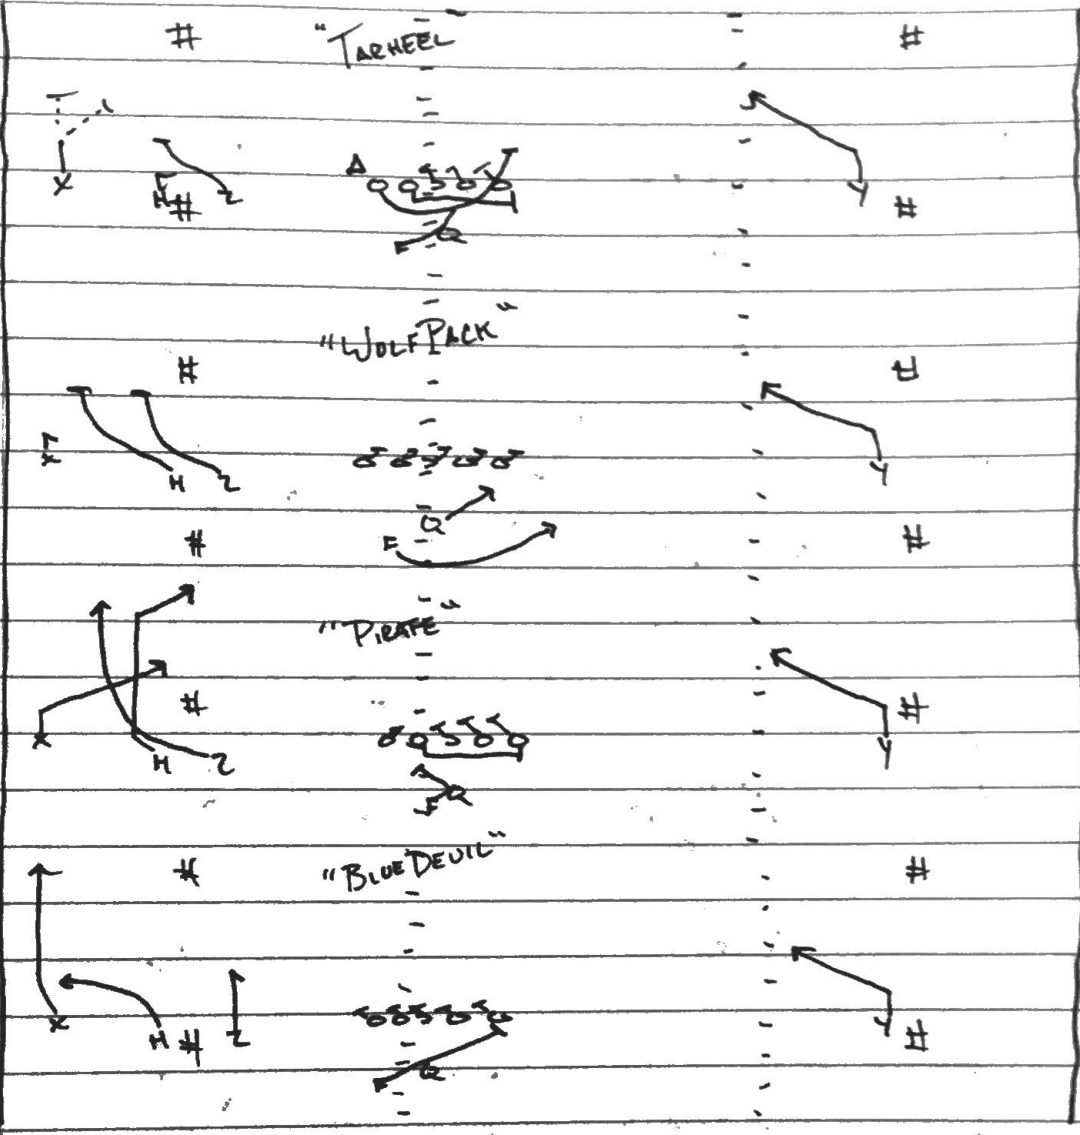 # "TARHEEL #
X F H # Z F Q Y #
"WOLFPACK"
# #
X H Z F Q Y
# #
"PIRATE"
# #
X H Z F Q Y
"BLUEDEVIL"
# #
X H # Z F Q Y #